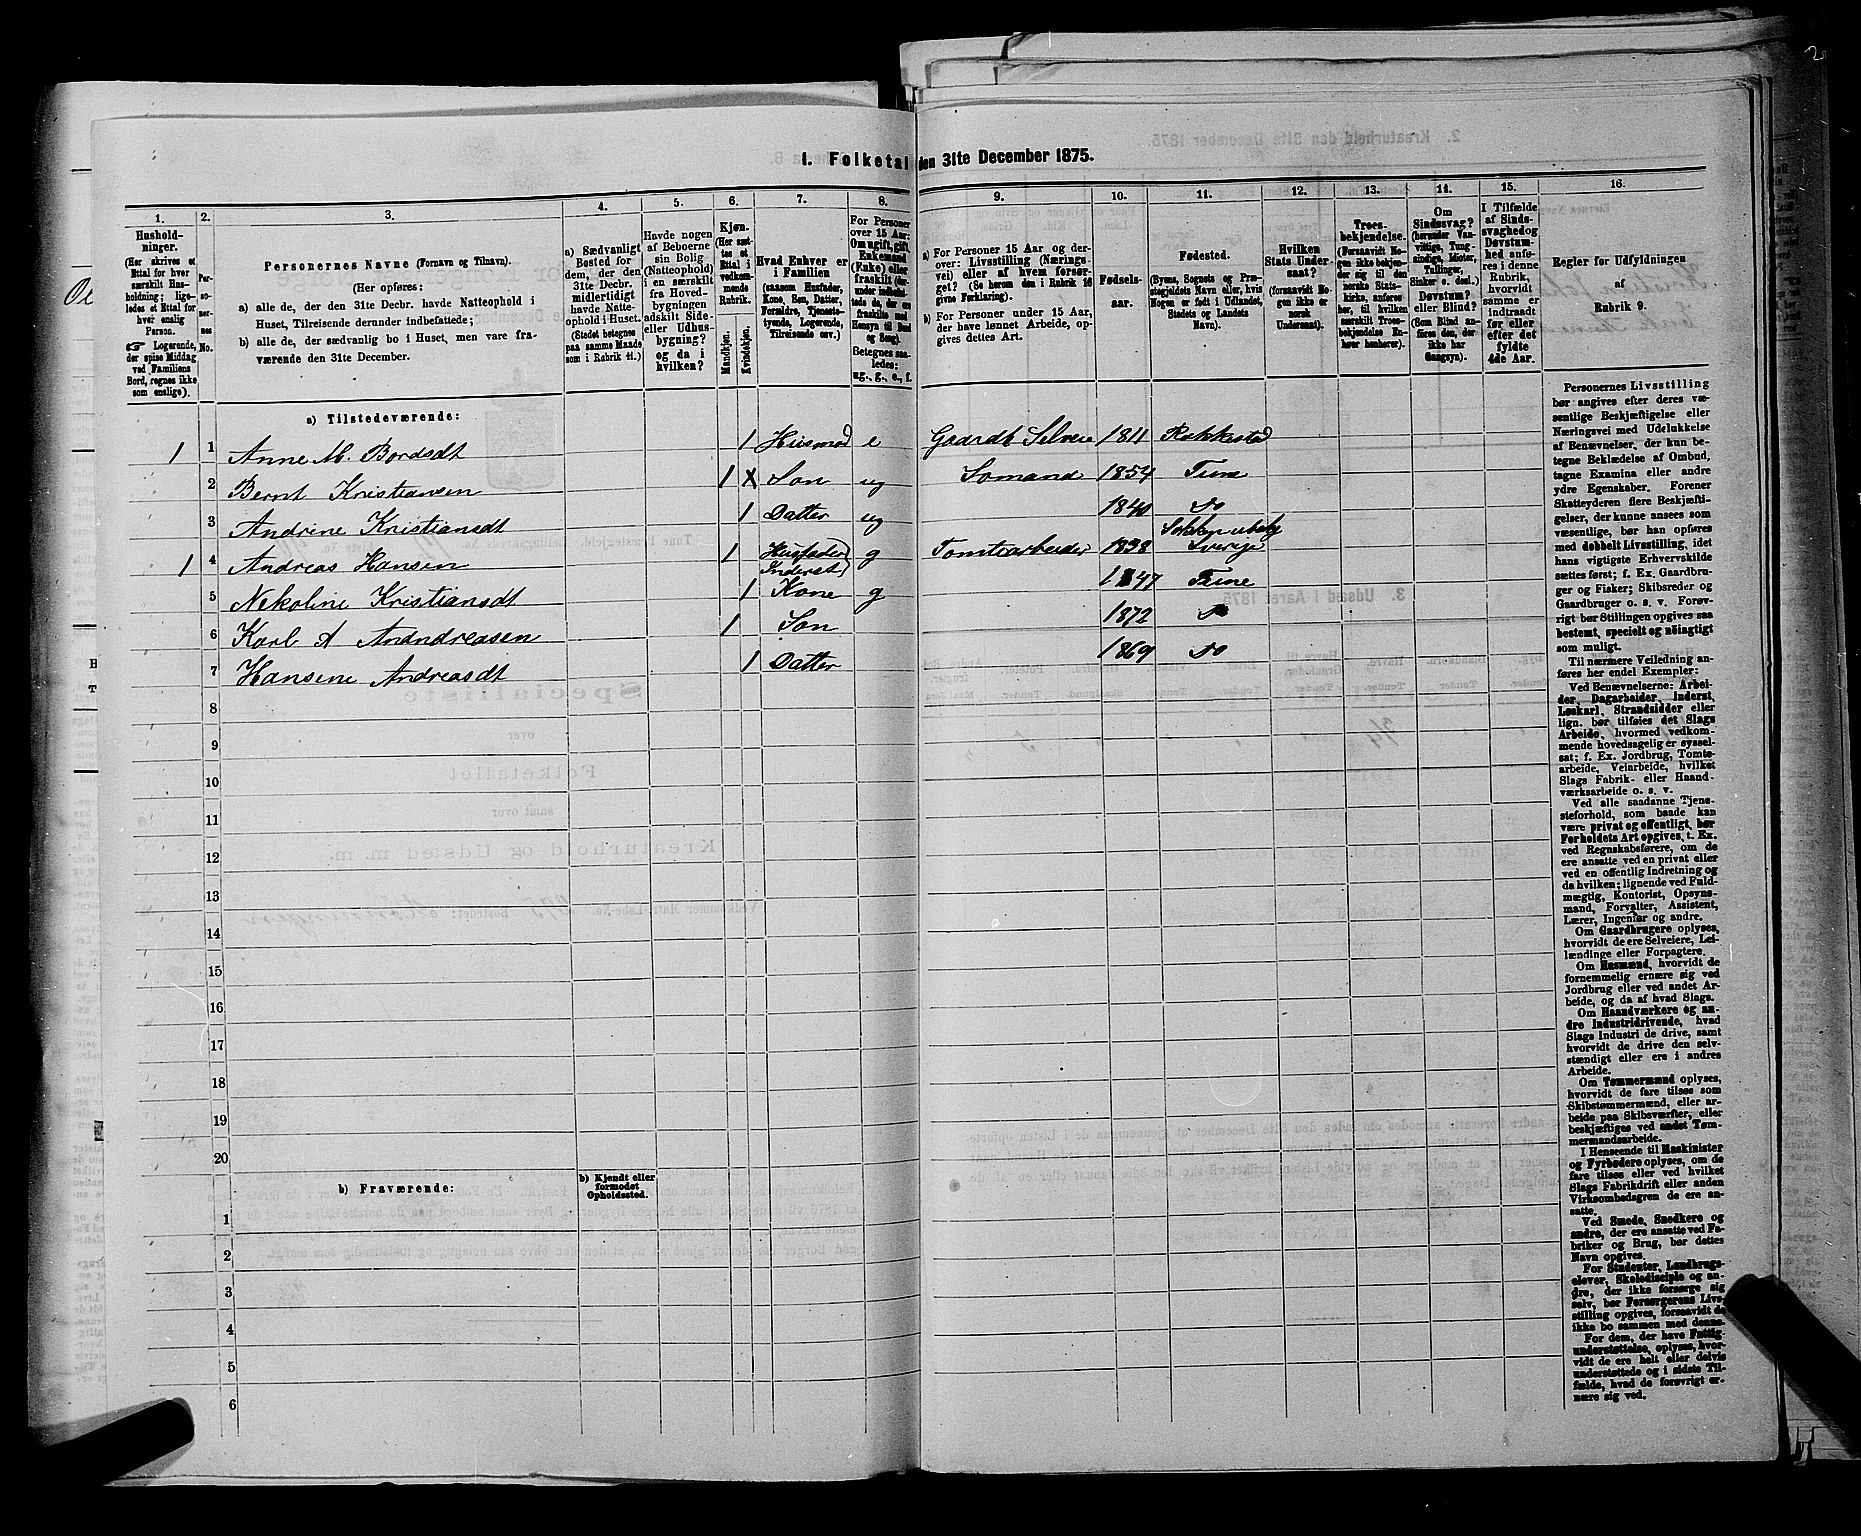 1. Folketal den 31te December 1875.
1. 2. 3. 4. 5. 6. 7. 8. 9. 10. 11. 12. 13. 14. 15. 16.
Hushold-
ninger.
(Her skrives et
Ettal for hver
særskilt Hus-
holdning; lige-
ledes et Ettal for
hver enslig
Person.
☞ Logerende,
der spise Middag
ved Familiens
Bord, regnes ikke
som enslige).
Per-
so-
ner-
nes
No.
Personernes Navne (Fornavn og Tilnavn).
(Her opføres:
a) alle de, der den 31te Decbr. havde Natteophold i
Huset, Tilreisende derunder indbefattede;
b) alle de, der sædvanlig bo i Huset, men vare fra-
værende den 31te December.
a) Sædvanligt
Bosted for
dem, der den
31te Decbr.
midlertidigt
havde Natte-
ophold i Huset.
(Stedet betegnes
paa samme Maade
som i Rubrik 11.)
Havde nogen
af Beboerne
sin Bolig
(Natteophold)
i en særskilt
fra Hoved-
bygningen
adskilt Side-
eller Udhus-
bygning?
og da i
hvilken?
Kjøn.
(Her sæt-
tes et
Ettal i
vedkom-
mende
Rubrik.
Mandkjøn.
Kvindekjøn.
Hvad Enhver er
i Familien
(saasom Husfader,
Kone, Søn, Datter,
Forældre, Tjeneste-
tyende, Logerende,
Tilreisende osv.)
For Personer
over 15 Aar:
Om ugift, gift,
Enkemand
(Enke) eller
fraskilt
Betegnes saa-
ledes:
ug., g., e., f.
a) For Personer 15 Aar og der-
over: Livsstilling (Nærings-
vei) eller af hvem forsør-
get? (Se herom den i Rubrik 16
givne Forklaring).
b) For Personer under 15 Aar,
der have lønnet Arbeide, op-
gives dettes Art.
Fødsels-
aar.
Fødested.
(Byens, Sognets og Præ-
stegjeldets Navn eller, hvis
Nogen er født i Udlandet,
Stedets og Landets
Navn).
Hvilken
Stats Under-
saat?
(forsaavidt No-
gen ikke er
norsk
Undersaat).
Troes-
bekjendelse.
(Forsaavidt No-
gen ikke bekjen-
der sig til den
norske Stats-
kirke, anføres
her, til hvilken
særskilt Troes-
bekjendelse En-
hver henhører).
Om
Sindssvag?
(herunder Van-
vittige, Tung-
sindige, Idioter,
Tullinger,
Sinker o. desl.)
Døvstum?
eller Blind?
(Som Blind an-
føres den, der
ikke har
Gangsyn).
I Tilfælde
af Sinds-
svaghed og
Døvstum-
hed anfø-
res i denne
Rubrik,
hvorvidt
samme er
indtraadt
før eller
efter det
fyldte
4de Aar.
Regler for Udfyldningen
af
Rubrik 9.
a) Tilstedeværende:
1 1 Anne M. Bordsdt 1 Husmod e Gaardb Selveier 1811 Rakkestad
2 Bernt Kristiansen 1 X Søn ug Sømand 1854 Tune
3 Andrine Kristiansdt 1 Datter ug 1840 do
1 4 Andreas Hansen 1 Husfader Inderst g Tomtearbeider 1838 Sverige
5 Nekoline Kristiansdt 1 Kone g 1847 Tune
6 Karl A Andndreasen 1 Søn 1872 Do
7 Hansene Andreasdt 1 Datter 1869 Do
8
9
10
11
12
13
14
15
16
17
18
19
20
b) Fraværende:
b) Kjendt eller
formodet
Opholdssted.
1
2
3
4
5
6
Personernes Livsstilling
bør angives efter deres væ-
sentlige Beskjæftigelse eller
Næringsvei med Udelukkelse
af Benævnelser, der kun be-
tegne Beklædelse af Ombud,
tagne Examina eller andre
ydre Egenskaber. Forener
Skatteyderen flere Beskjæfti-
gelser, der kunne ansees som
væsentlige, bør han opføres
med dobbelt Livsstilling, idet
hans vigtigste Erhvervskilde
sættes først; f. Ex. Gaardbru-
ger og Fisker; Skibsreder og
Gaardbruger o. s. v. Forøv-
rigt bør Stillingen opgives saa
bestemt, specielt og nøiagtigt
som muligt.
Til nærmere Veiledning an-
føres her endel Exempler:
Ved Benævnelserne: Arbei-
der, Dagarbeider, Inderst,
Løskarl, Strandsidder eller
lign. bør tilføies det Slags
Arbeide, hvormed vedkom-
mende hovedsagelig er syssel-
sat; f. Ex. Jordbrug, Tomte-
arbeide, Veiarbeide, hvilket
Slags Fabrik- eller Haand-
værksarbeide o. s. v.
Ved alle saadanne Tjene-
steforhold, som baade kan
være privat og offentligt, bør
Forholdets Art opgives, t. Ex.
ved Regnskabsførere, om de
ere ansatte ved en privat eller
ved en offentlig Indretning og
da hvilken; lignende ved Fuld-
mægtig, Kontorist, Opsyns-
mand, Forvalter, Assistent,
Lærer, Ingeniør og andre.
Om Gaardbrugere oplyses,
hvorvidt de ere Selveiere, Lei-
lændinge eller Forpagtere.
Om Husmænd, hvorvidt de
fornemmelig ernære sig ved
Jordbrug eller ved andet Ar-
beide, og da af hvad Slags.
Om Haandværkere og an-
dre Industridrivende, hvad
Slags Industri de drive, samt
hvorvidt de drive den selv-
stændigt eller ere i andres
Arbeide.
Om Tømmermænd oplyses,
hvorvidt de fare tilsøs som
Skibstømmermænd, eller ar-
beide paa Skibsværfter, eller
beskjæftiges ved andet Tøm-
mermandsarbeide.
I Henseende til Maskinister
og Fyrbødere oplyses, om de
fare tilsøs eller ved hvilket
Slags Fabrikdrift eller anden
Virksomhedsgren de ere an-
satte.
Ved Smede, Snedkere og
andre, der ere ansatte ved Fa-
briker og Brug, bør dettes
Navn opgives.
For Studenter, Landbrugs-
elever, Skoledisciple og an-
dre, der ikke forsørge sig
selv, bør Forsørgerens Livs-
stilling opgives, forsaavidt de
ikke bo sammen med denne.
For dem, der have Fattig-
understøttelse, oplyses, hvor-
vidt de ere helt eller delvis
understøttede og i sidste Til-
fælde, hvad de forøvrigt er-
nære sig ved.